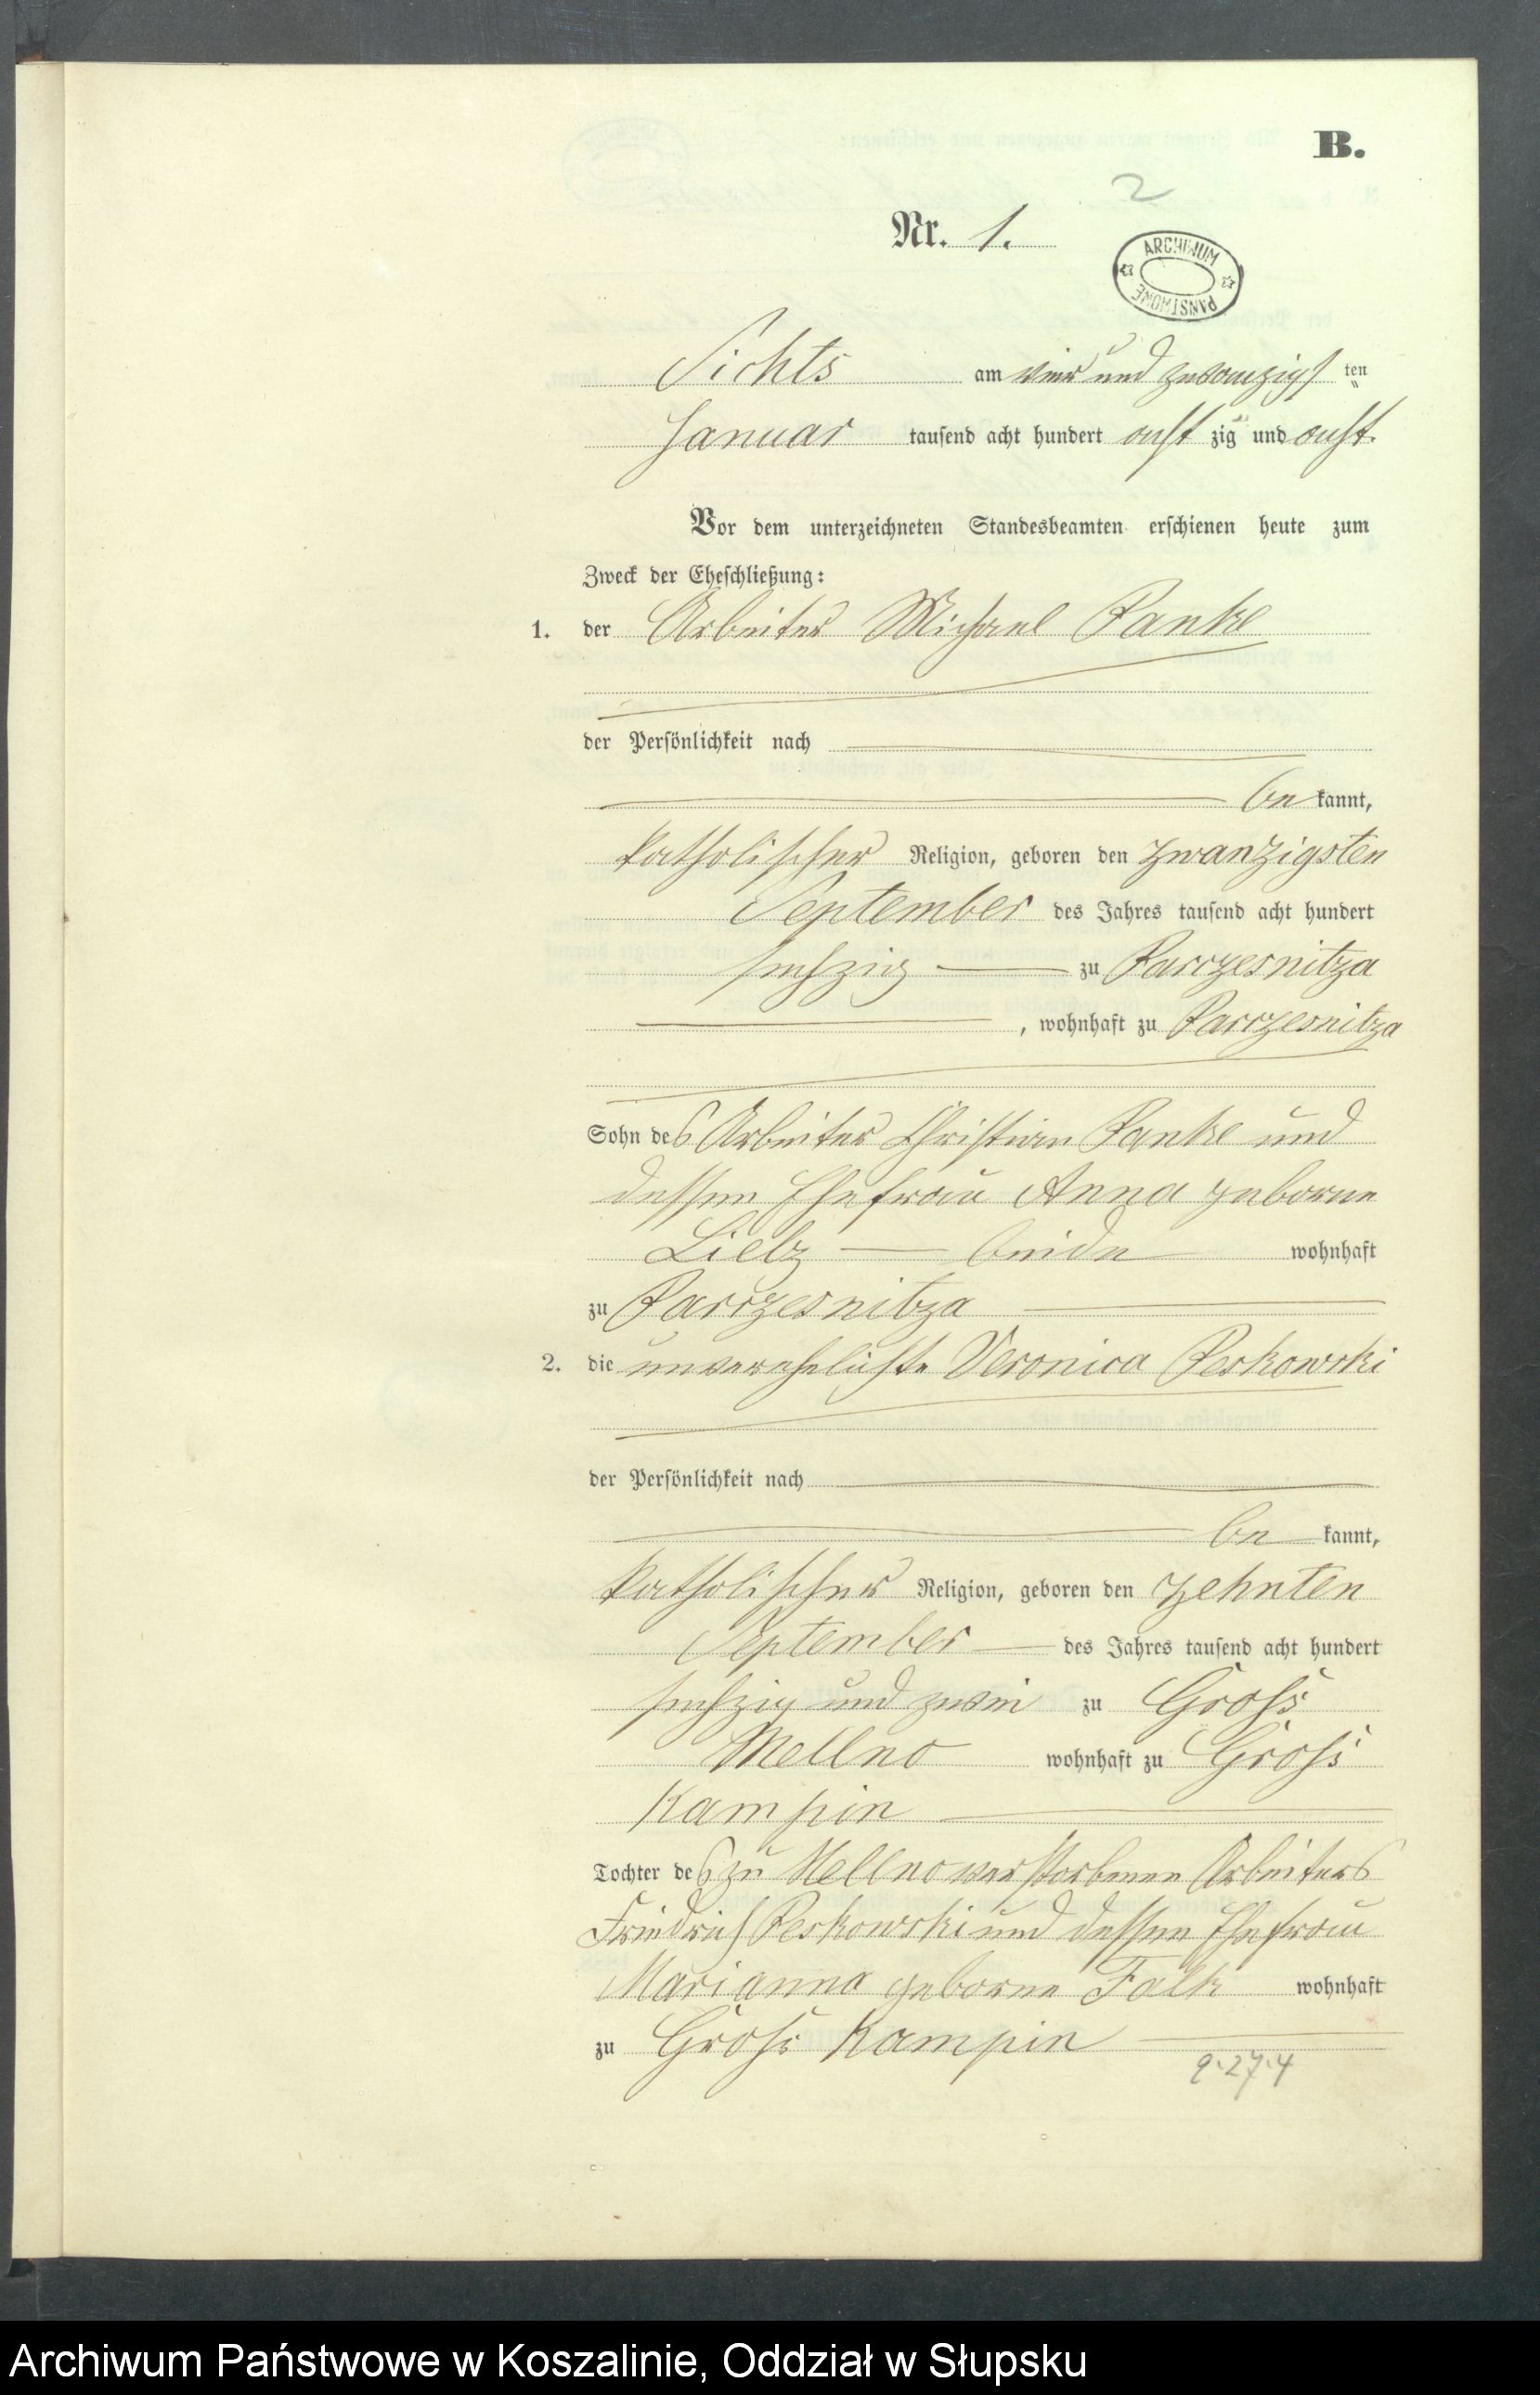 B.
2
Nr. 1.
ARCHIWUM PAŃSTWOWE
Sichts am vier und zwanzigs ten
Januar tausend acht hundert acht zig und acht.
Vor dem unterzeichneten Standesbeamten erschienen heute zum
Zweck der Eheschließung:
1. der Arbeiter Michael Panke
der Persönlichkeit nach
be kannt,
katholischer Religion, geboren den zwanzigsten
September des Jahres tausend acht hundert
sechzig zu Parczesnitza
, wohnhaft zu Parczesnitza
Sohn des Arbeiter Christian Panke und
dessen Ehefrau Anna geborne
Lietz beide wohnhaft
zu Parczesnitza
2. die unverehelichte Veronica Peskowski
der Persönlichkeit nach
be kannt,
katholischer Religion, geboren den zehnten
September des Jahres tausend acht hundert
sechzig und zwei zu Gross
Mellno wohnhaft zu Gross
Kampin
Tochter des zu Mellno verstorbenen Arbeiters
Friedrich Peskowski und dessen Ehefrau
Marianna geborne Falk wohnhaft
zu Gross Kampin
9.27.4
Archiwum Państwowe w Koszalinie, Oddział w Słupsku